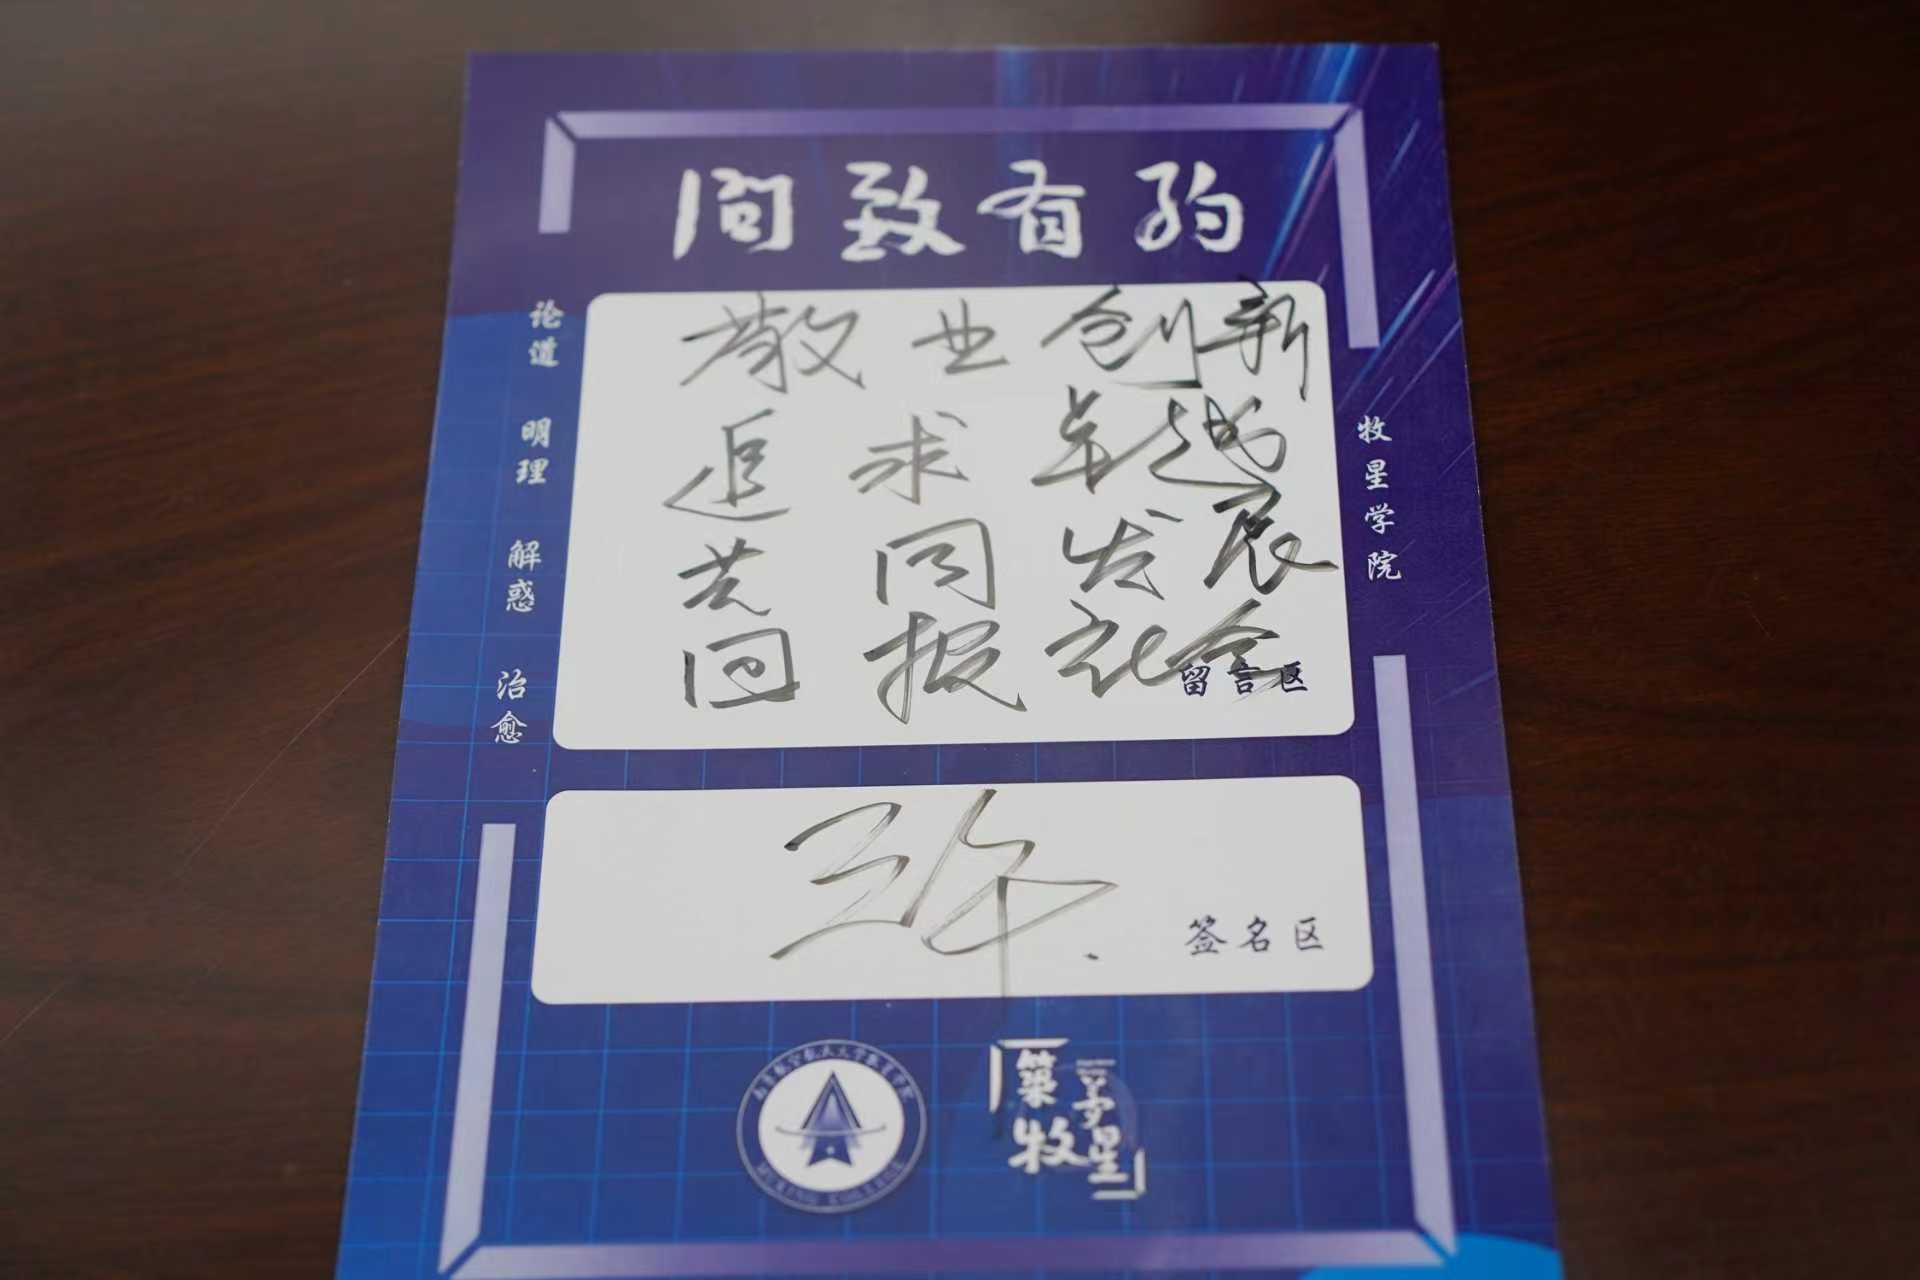 问致有约
论道 明理 解惑 治愈
牧星学院
敬业创新
追求卓越
共同发展
回报社会
留言区
签名区
筑梦
牧星